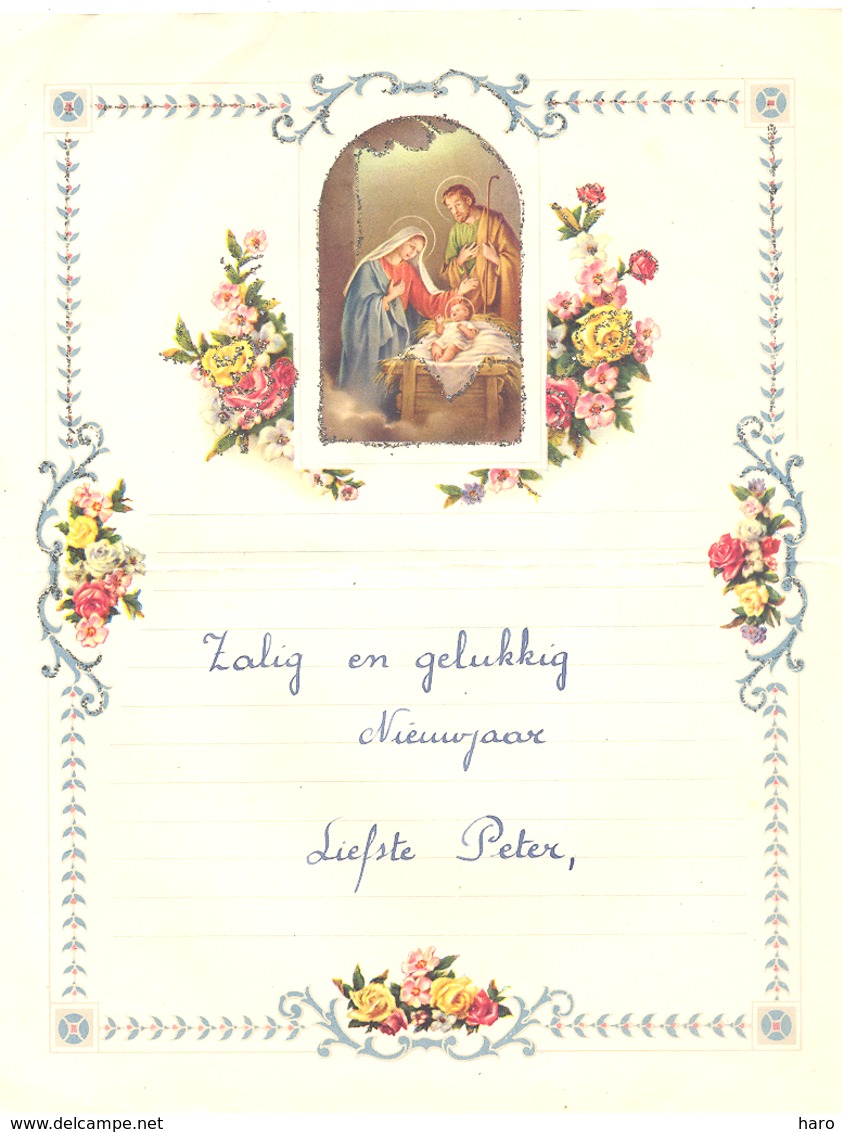 Zalig en gelukkig
Nieuwjaar
Liefste Peter,
www.delcampe.net
haro